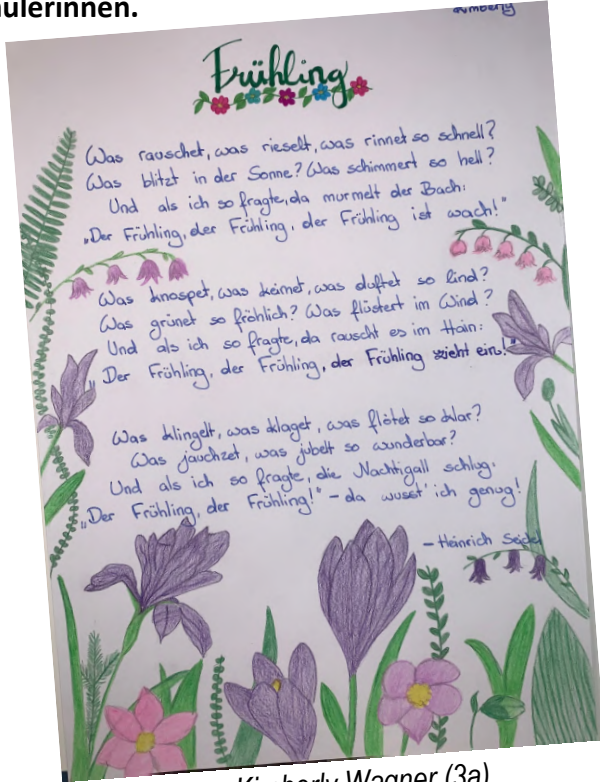 ülerinnen.
Kimberly
Frühling
Was rauschet, was rieselt, was rinnet so schnell?
Was blitzt in der Sonne? Was schimmert so hell?
Und als ich so fragte, da murmelt der Bach:
„Der Frühling, der Frühling, der Frühling ist wach!"
Was knospet, was keimet, was duftet so lind?
Was grünet so fröhlich? Was flüstert im Wind?
Und als ich so fragte, da rauscht es im Hain:
„Der Frühling, der Frühling, der Frühling zieht ein!"
Was klingelt, was klaget, was flötet so klar?
Was jauchzet, was jubelt so wunderbar?
Und als ich so fragte, die Nachtigall schlug.
„Der Frühling, der Frühling!" – da wusst' ich genug!
– Heinrich Seidel
Kimberly Wagner (3a)